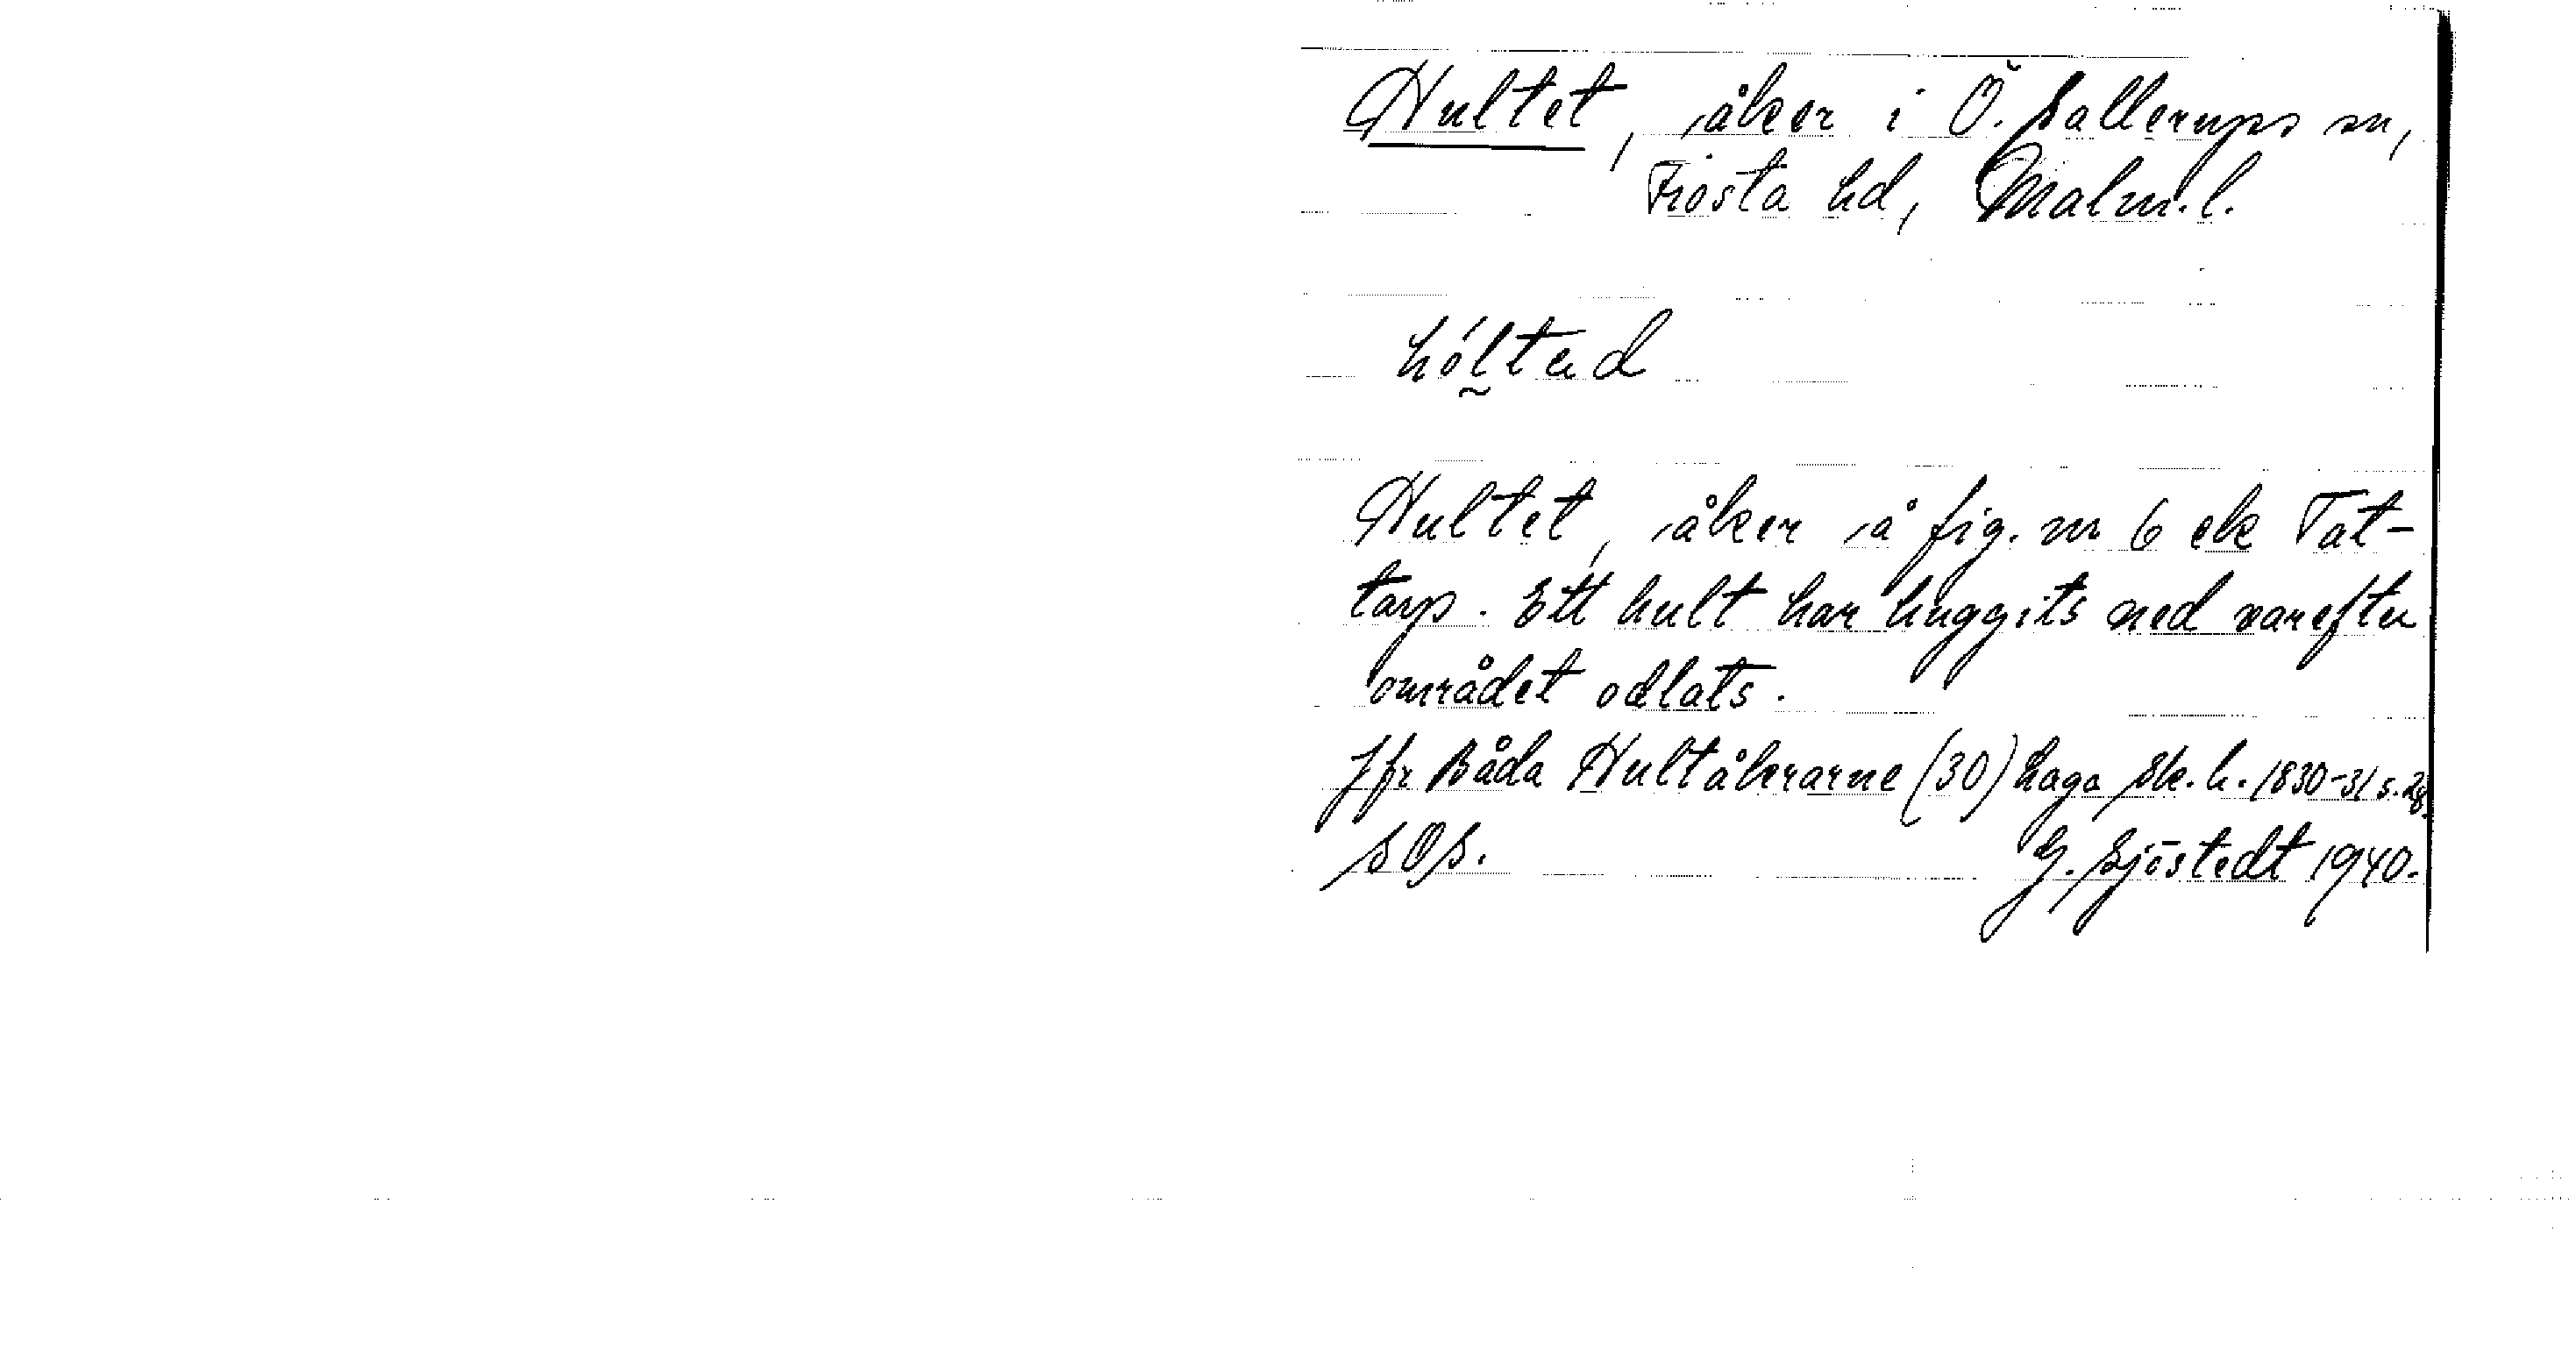 Hultet, åker i Ö. Sallerups sn,
Frosta hd, Malm.l.
hóltəd
Hultet, åker å fig. nr 6 ek Tat-
tarp. Ett hult har huggits ned varefter
området odlats.
Jfr Båda Hultåkrarne (30) haga sk.h. 1830-31 s. 28.
SOS.
G. Sjöstedt 1940.